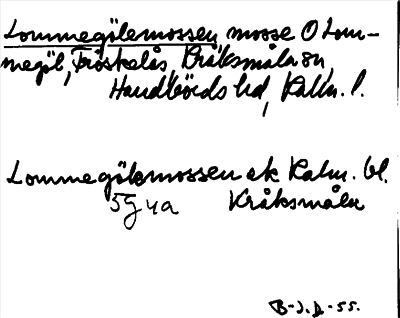 Lommegölemossen, mosse O Lom-
megöl, Fröskelås, Kråksmåla sn,
Handbörds hd, Kalm. l.
Lommegölemossen ek Kalm. bl.
5g 4a Kråksmåla
B-J.D-55.